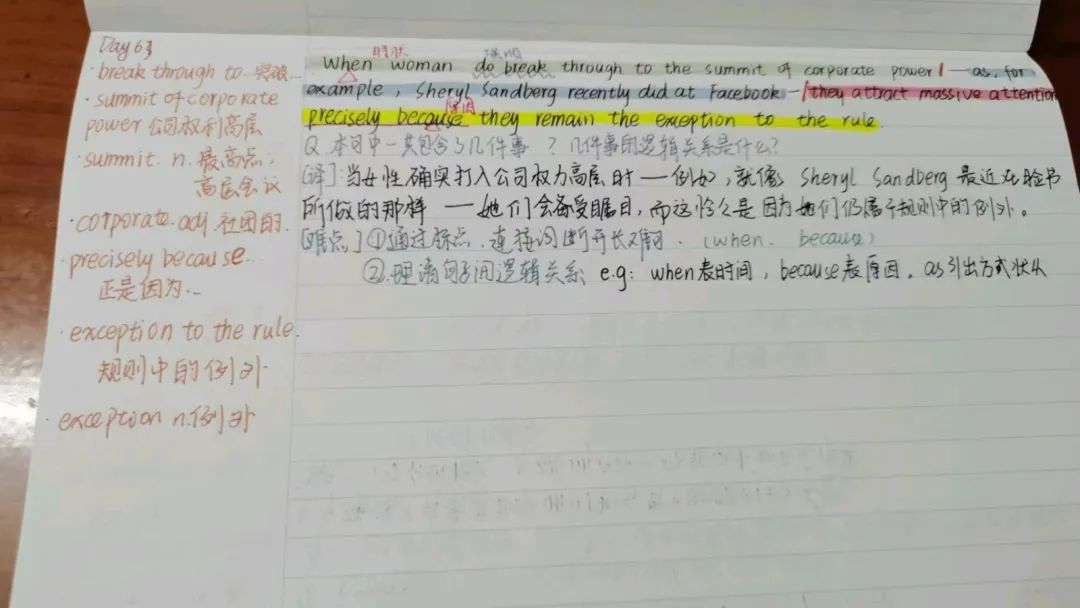 Day 63
· break through to 突破...
· summit of corporate
power 公司权利高层
· summit. n. 最高点;
高层会议
· corporate. adj 社团的.
· precisely because...
正是因为...
· exception to the rule.
规则中的例外
· exception n.例外
时状 强调
When woman do break through to the summit of corporate power — as, for
example, Sheryl Sandberg recently did at Facebook - they attract massive attention
原因
precisely because they remain the exception to the rule.
Q. 本句中一共包含了几件事? 几件事的逻辑关系是什么?
[译]:当女性确实打入公司权力高层时 — 例如,就像 Sheryl Sandberg 最近在脸书
所做的那样 — 她们会备受瞩目,而这恰恰是因为她们仍属于规则中的例外。
[难点] ①通过标点、连接词断开长难句. (when. because)
②.理清句子间逻辑关系 e.g: when表时间, because表原因, as引出方式状从